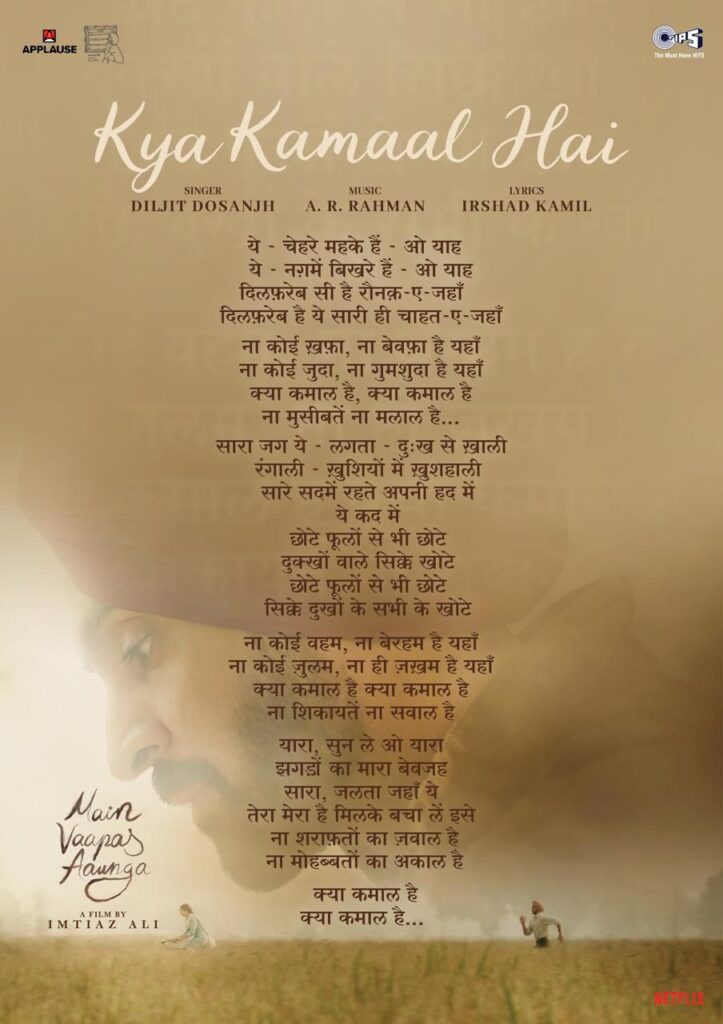 APPLAUSE
TIPS
The Must Have HITS
Kya Kamaal Hai
SINGER
DILJIT DOSANJH
MUSIC
A. R. RAHMAN
LYRICS
IRSHAD KAMIL
ये - चेहरे महके हैं - ओ याह
ये - नग़में बिखरे हैं - ओ याह
दिलफ़रेब सी है रौनक़-ए-जहाँ
दिलफ़रेब है ये सारी ही चाहत-ए-जहाँ
ना कोई ख़फ़ा, ना बेवफ़ा है यहाँ
ना कोई जुदा, ना गुमशुदा है यहाँ
क्या कमाल है, क्या कमाल है
ना मुसीबतें ना मलाल है...
सारा जग ये - लगता - दुःख से ख़ाली
रंगाली - ख़ुशियों में ख़ुशहाली
सारे सदमें रहते अपनी हद में
ये कद में
छोटे फूलों से भी छोटे
दुक्खों वाले सिक्के खोटे
छोटे फूलों से भी छोटे
सिक्के दुखों के सभी के खोटे
ना कोई वहम, ना बेरहम है यहाँ
ना कोई ज़ुलम, ना ही ज़ख़म है यहाँ
क्या कमाल है क्या कमाल है
ना शिकायतें ना सवाल है
यारा, सुन ले ओ यारा
झगड़ों का मारा बेवजह
सारा, जलता जहाँ ये
तेरा मेरा है मिलके बचा लें इसे
ना शराफ़तों का ज़वाल है
ना मोहब्बतों का अकाल है
क्या कमाल है
क्या कमाल है...
Main
Vaapas
Aaunga
A FILM BY
IMTIAZ ALI
NETFLIX